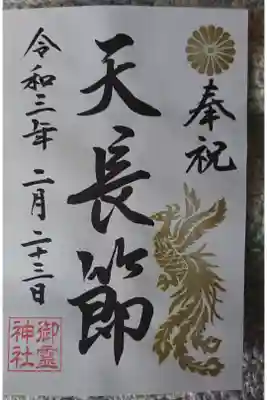 奉祝
天長節
令和三年 二月二十三日
御霊神社